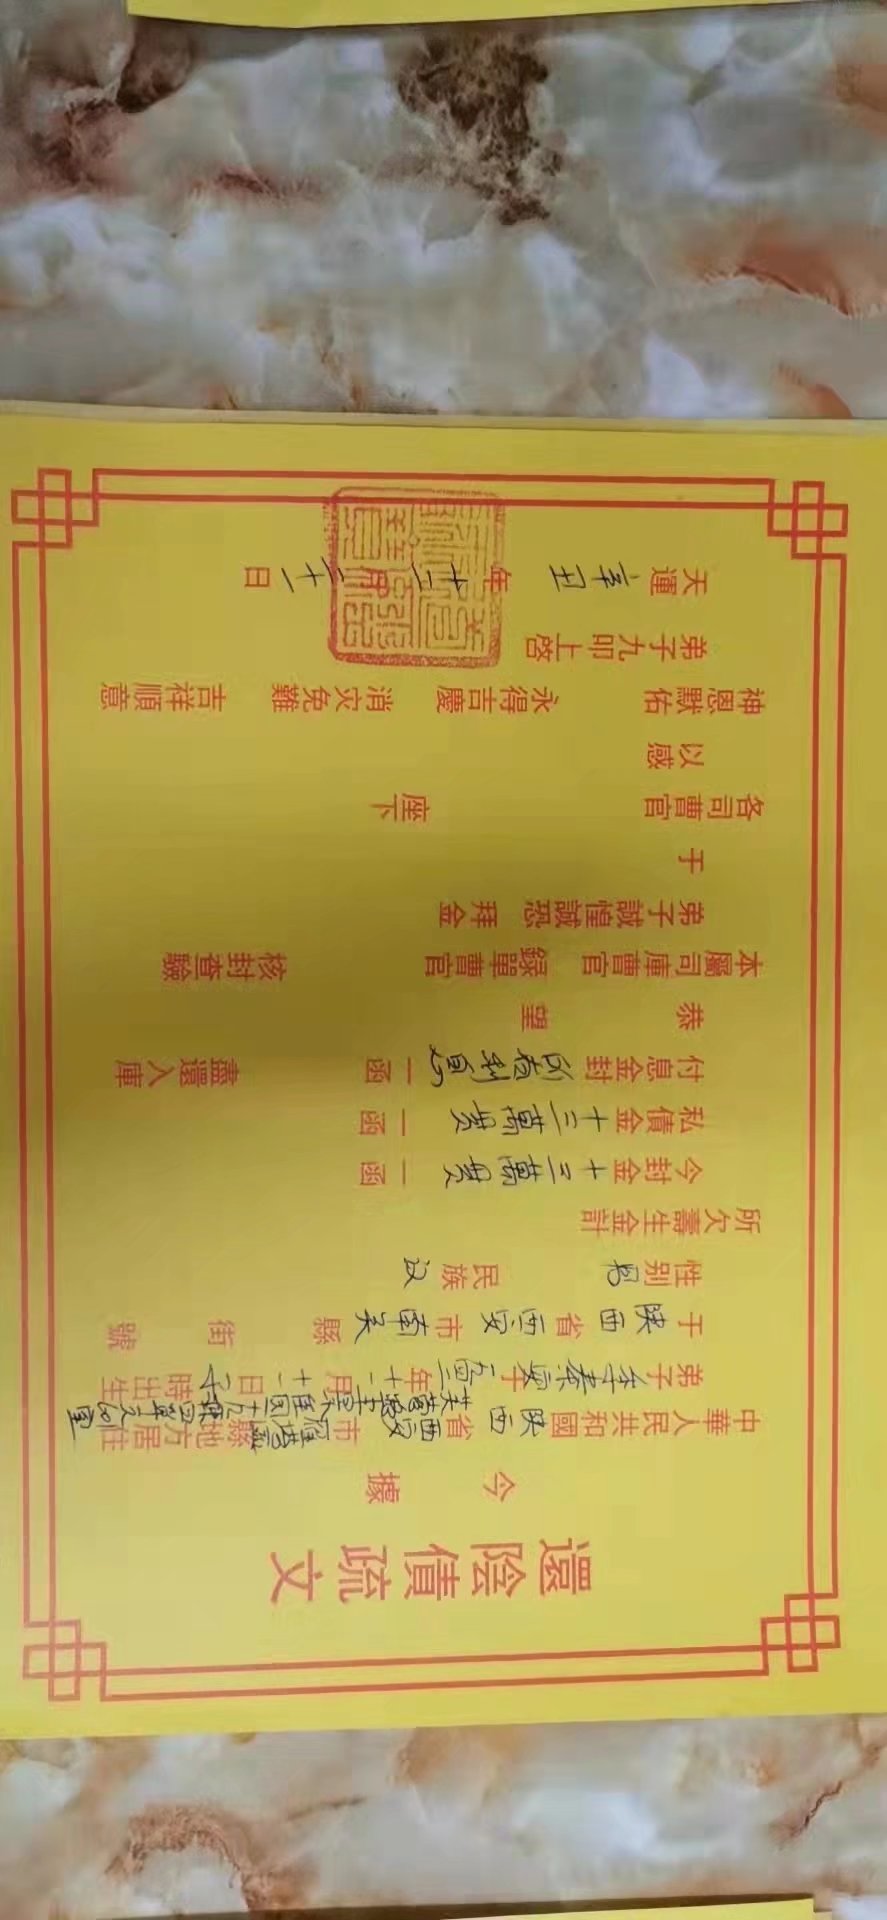 還陰債疏文
今據
中華人民共和國陝西省西安市雁塔縣地方居住
弟子 于一九 年十一月十一日子時出生
于陝西省西安市 縣 街 號
性别男 民族汉
所欠壽生金計
今封金十三萬贯一函
私債金十三萬贯一函
付息金封 一函 盡還入庫
恭望
本屬司庫曹官 錄單曹官 核封查驗
弟子誠惶誠恐 拜金
于
各司曹官 座下
以感
神恩默佑 永得吉慶 消灾免難 吉祥順意
弟子九叩上啓
天運辛丑年十二月二十一日